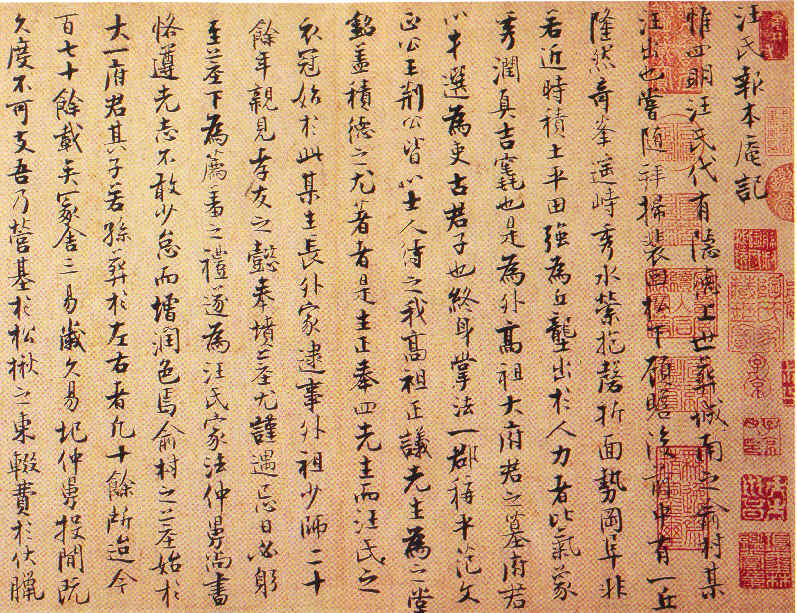 汪氏報本庵記
惟四明汪氏代有隱德上世葬城南之俞村某
汪出也嘗隨拜掃裴回松下顧瞻後前中有一丘
隆然奇峯遥峙秀水縈抱磬折面勢岡阜非
若近時積土平田強為丘壟出於人力者比氣象
秀潤真吉宅也是為外高祖大府君之墓府君
以才選為吏古君子也終身掌法一郡稱平范文
正公王荆公皆以士人待之我高祖正議先生為之堂
銘蓋積德之尤著者是生正奉四先生而汪氏之
衣冠始於此某生長外家逮事外祖少師二十
餘年親見孝友之懿奉墳墓尤謹遇忌日必躬
至墓下為薦羞之禮遂為汪氏家法仲舅尚書
恪遵先志不敢少怠而增潤色焉俞村之墓始於
大一府君其子若孫葬於左右者凡十餘所迨今
百七十餘載矣冢舍三易歲久易圮仲舅投閒既
久度不可支吾乃營基於松楸之東輟費於伏臘